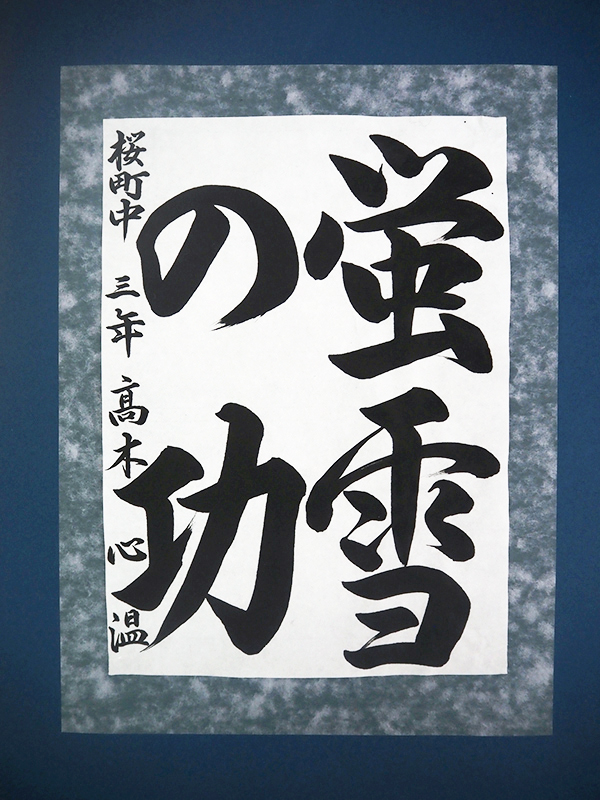 蛍雪
の功
桜町中 三年 髙木 心温